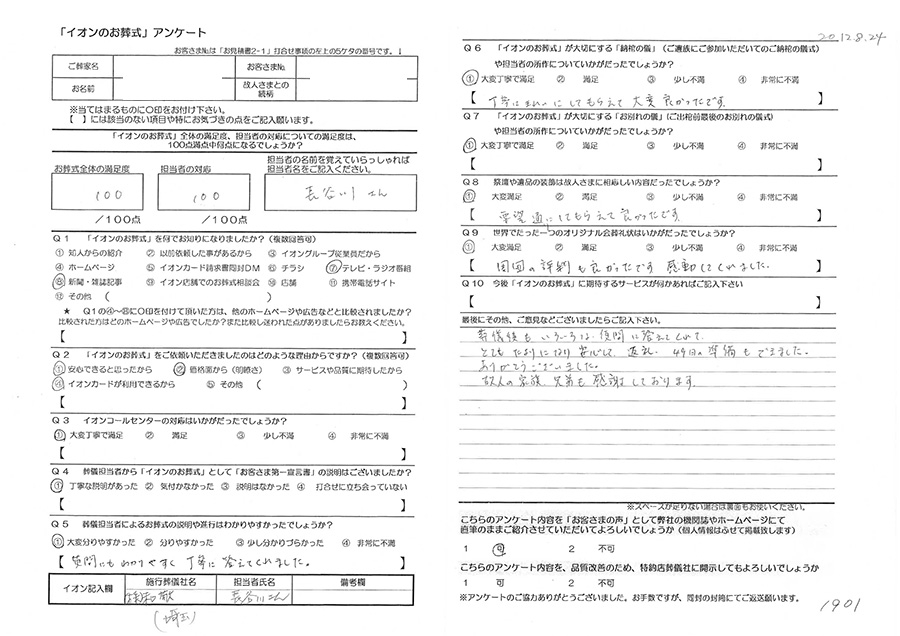 「イオンのお葬式」アンケート
お客さま№は「お見積書2-1」打合せ事項の左上の5ケタの番号です。↓
ご葬家名 お客さま№
お名前 故人さまとの続柄
※当てはまるものに○印をお付け下さい。
【 】には該当のない項目や特にお気づきの点をご記入願います。
「イオンのお葬式」全体の満足度、担当者の対応についての満足度は、
100点満点中何点になるでしょうか?
お葬式全体の満足度 担当者の対応 担当者の名前を覚えていらっしゃれば
担当者名をご記入ください。
100 100 長谷川さん
/100点 /100点
Q1 「イオンのお葬式」を何でお知りになりましたか?(複数回答可)
① 知人からの紹介 ② 以前依頼した事があるから ③ イオングループ従業員だから
④ ホームページ ⑤ イオンカード請求書同封DM ⑥ チラシ ⑦ テレビ・ラジオ番組
⑧ 新聞・雑誌記事 ⑨ イオン店舗でのお葬式相談会 ⑩ 店舗 ⑪ 携帯電話サイト
⑫ その他 ( )
★ Q1の④~⑧に○印を付けて頂いた方は、他のホームページや広告などと比較されましたか?
比較された方はどのホームページや広告でしたか?また比較し迷われた点がありましたらお教えください。
【 】
Q2 「イオンのお葬式」をご依頼いただきましたのはどのような理由からですか?(複数回答可)
① 安心できると思ったから ② 価格面から(明瞭さ) ③ サービスや品質に期待したから
④ イオンカードが利用できるから ⑤ その他 ( )
【 】
Q3 イオンコールセンターの対応はいかがだったでしょうか?
① 大変丁寧で満足 ② 満足 ③ 少し不満 ④ 非常に不満
【 】
Q4 葬儀担当者から「イオンのお葬式」として「お客さま第一宣言書」の説明はございましたか?
① 丁寧な説明があった ② 気付かなかった ③ 説明はなかった ④ 打合せに立ち会っていない
【 】
Q5 葬儀担当者によるお葬式の説明や進行はわかりやすかったでしょうか?
① 大変分りやすかった ② 分りやすかった ③ 少し分りづらかった ④ 非常に不満
【 質問にもわかりやすく丁寧に答えてくれました。 】
イオン記入欄 施行葬儀社名 担当者氏名 備考欄
長谷川さん
(埼玉)
2012.8.24
Q6 「イオンのお葬式」が大切にする「納棺の儀」(ご遺族にご参加いただいてのご納棺の儀式)
や担当者の所作についていかがだったでしょうか?
① 大変丁寧で満足 ② 満足 ③ 少し不満 ④ 非常に不満
【 丁寧にきれいにしてもらえて大変良かったです。 】
Q7 「イオンのお葬式」が大切にする「お別れの儀」(ご出棺前最後のお別れの儀式)
や担当者の所作についていかがだったでしょうか?
① 大変丁寧で満足 ② 満足 ③ 少し不満 ④ 非常に不満
【 】
Q8 祭壇や遺品の装飾は故人さまに相応しい内容だったでしょうか?
① 大変満足 ② 満足 ③ 少し不満 ④ 非常に不満
【 要望通にしてもらえて良かったです 】
Q9 世界でたった一つのオリジナル会葬礼状はいかがだったでしょうか?
① 大変満足 ② 満足 ③ 少し不満 ④ 非常に不満
【 周囲の評判も良かったです 感動してくれました。 】
Q10 今後「イオンのお葬式」に期待するサービスが何かあればご記入下さい
【 】
最後にその他、ご意見などございましたらご記入下さい。
葬儀後もいろいろな質問に答えてくれて
とてもたよりになり安心して、返礼、49日の準備もできました。
ありがとうございました。
故人の家族、兄弟も感謝しております。
※スペースが足りない場合は裏面もお使いください。
こちらのアンケート内容を「お客さまの声」として弊社の機関誌やホームページにて
直筆のままご紹介させていただいてよろしいでしょうか(個人情報はふせて掲載致します)
1 可 2 不可
こちらのアンケート内容を、品質改善のため、特約店葬儀社に開示してもよろしいでしょうか
1 可 2 不可
※アンケートのご協力ありがとうございました。お手数ですが、同封の封筒にてご返送願います。
1901